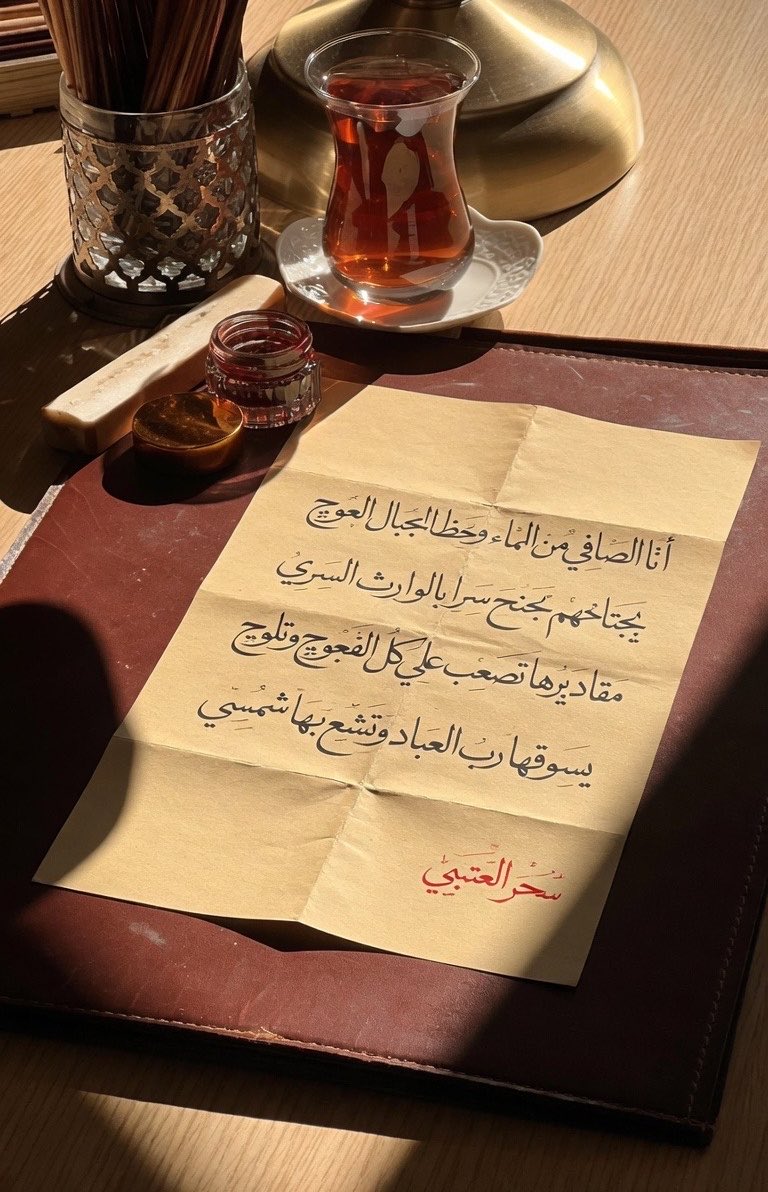 أنا الصافي من الماء وحظا الجبال العوج
يجتاحهم بجنح سرا بالوارث السري
مقاديرها تصعب علي كل الفعوج وتلوح
يسوقها رب العباد وتشع بها شمسي
سحر العتيبي